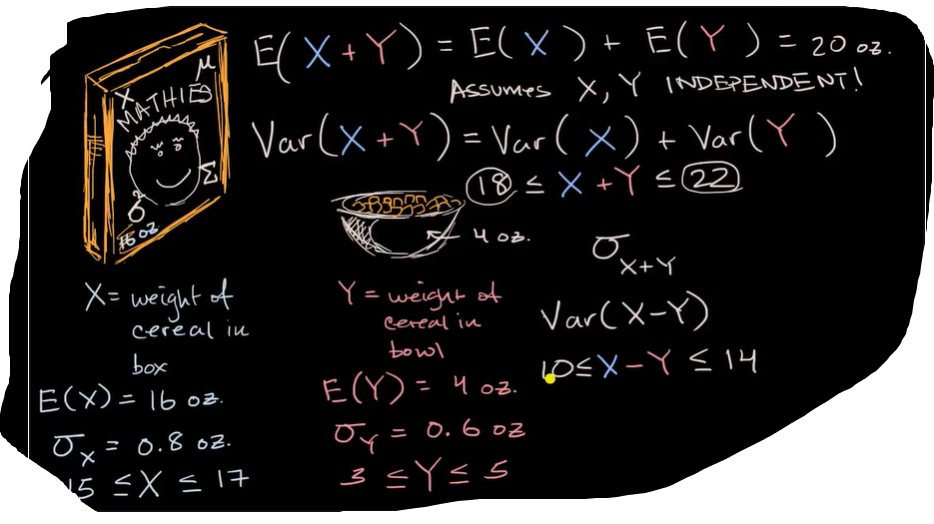 E(X+Y) = E(X) + E(Y) = 20 oz.
ASSUMES X, Y INDEPENDENT!
Var(X+Y) = Var(X) + Var(Y)
18 ≤ X+Y ≤ 22
μ
X
MATHIES
Σ
σ²
16 oz
4 oz.
σ_{X+Y}
X = weight of
cereal in
box
E(X) = 16 oz.
σ_X = 0.8 oz.
15 ≤ X ≤ 17
Y = weight of
cereal in
bowl
E(Y) = 4 oz.
σ_Y = 0.6 oz
3 ≤ Y ≤ 5
Var(X-Y)
10 ≤ X - Y ≤ 14